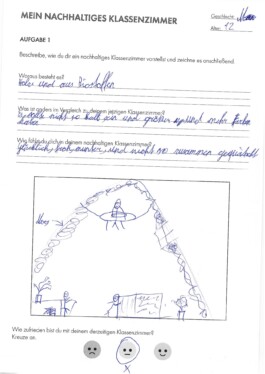 MEIN NACHHALTIGES KLASSENZIMMER
Geschlecht:
Alter: 12
AUFGABE 1
Beschreibe, wie du dir ein nachhaltiges Klassenzimmer vorstellst und zeichne es anschließend.
Woraus besteht es?
Holz und aus Biostoffen
Was ist anders im Vergleich zu deinem jetzigen Klassenzimmer?
nicht so kalt sein und größer und mehr Farbe
haben
Wie fühlst du dich in deinem nachhaltigen Klassenzimmer?
glücklich, froh, munter, und nicht so zusammen gequetscht
Wie zufrieden bist du mit deinem derzeitigen Klassenzimmer?
Kreuze an.
X